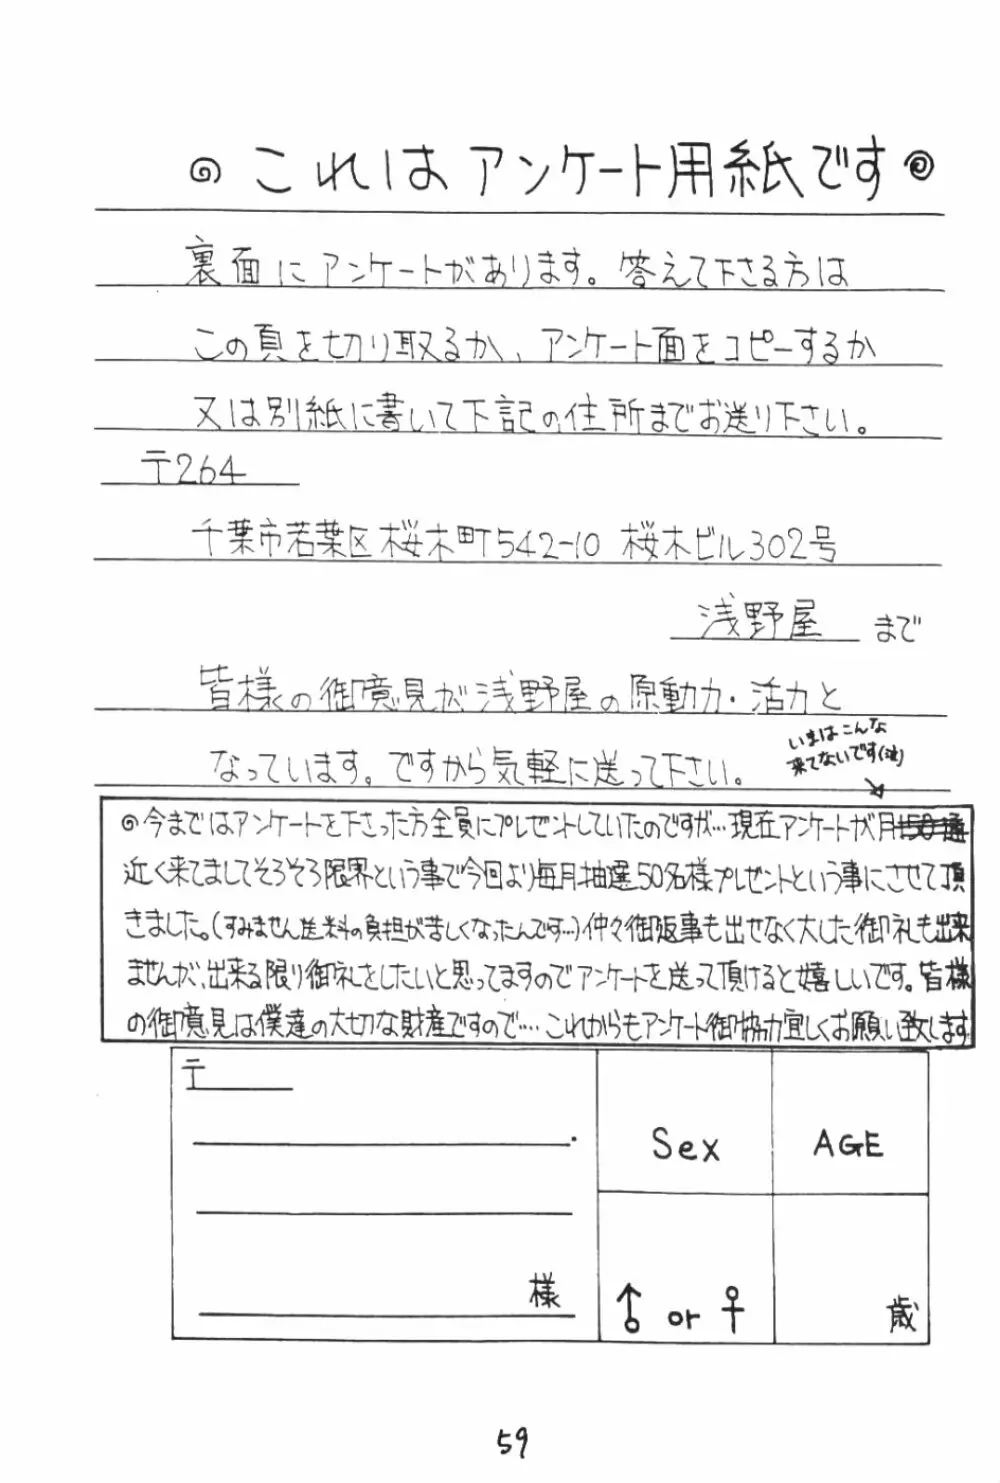 これはアンケート用紙です
裏面にアンケートがあります。答えて下さる方は
この頁を切り取るか、アンケート面をコピーするか
又は別紙に書いて下記の住所までお送り下さい。
〒264
千葉市若葉区桜木町542-10 桜木ビル302号
浅野屋 まで
皆様の御意見が浅野屋の原動力・活力と
なっています。ですから気軽に送って下さい。
いまはこんな
来てないです(泣)
◎今まではアンケートを下さった方全員にプレゼントしていたのですが…現在アンケートが月150通
近く来てましてそろそろ限界という事で今回より毎月抽選50名様プレゼントという事にさせて頂
きました。(すみません送料の負担が苦しくなったんです…)仲々御返事も出せなく大した御礼も出来
ませんが、出来る限り御礼をしたいと思ってますのでアンケートを送って頂けると嬉しいです。皆様
の御意見は僕達の大切な財産ですので…これからもアンケート御協力宜しくお願い致します
〒
Sex
AGE
様
♂ or ♀
歳
59